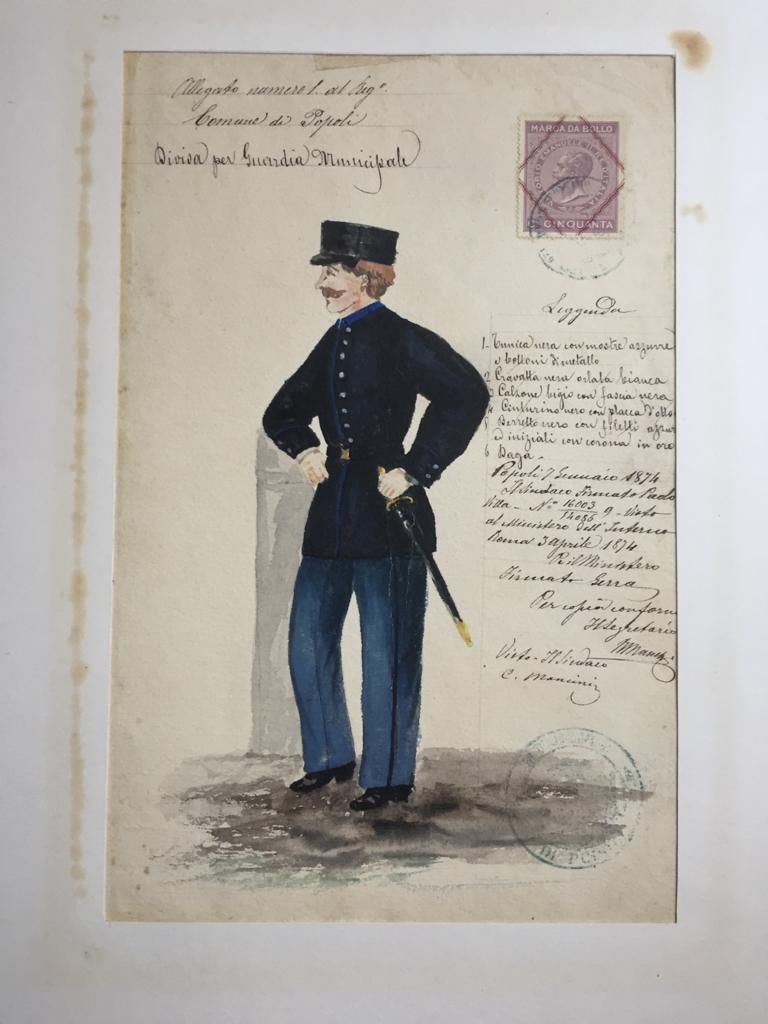 Allegato numero 1. al Reg.º
Comune di Popoli
Divisa per Guardia Municipale
MARCA DA BOLLO
VITTORIO EMANUELE II RE D'ITALIA
CINQUANTA
Leggenda
1- Tunica nera con mostre azzurre
e bottoni di metallo
2 Cravatta nera orlata bianca
3 Calzone bigio con fascia nera
4 Centurino nero con placca d'otto
5 Berretto nero con filetti azzur
ed iniziali con corona in oro
6 Daga -
Popoli 7 Gennaio 1874
Il Sindaco Firmato Paolo
Villa - Nº 16003/14086 9 - Visto
al Ministero dell'Interno
Roma 3 Aprile 1874
Pel Ministero
Firmato Gerra
Per copia conforme
Il Segretario
Visto - Il Sindaco
C. Mancini
DI POPOLI